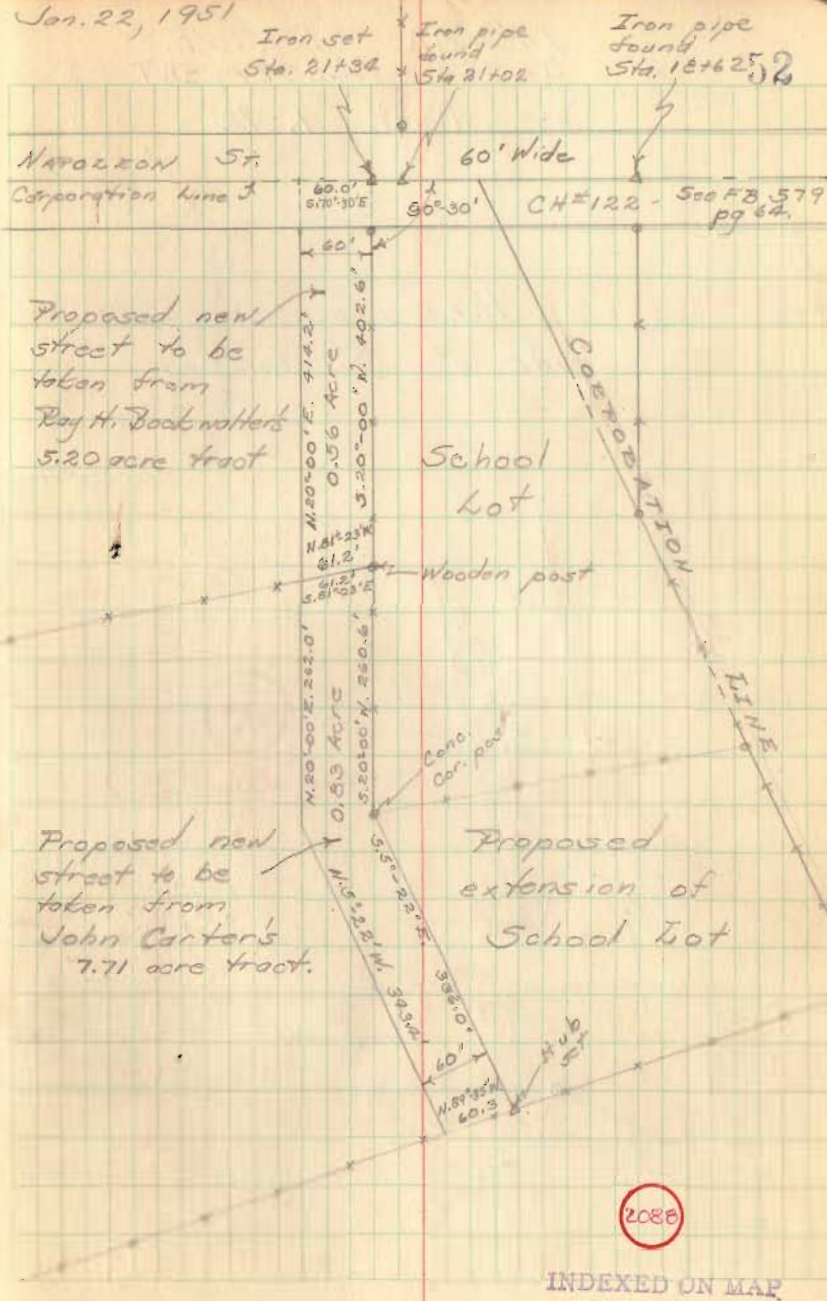 Jan. 22, 1951
Iron set
Sta. 21+34
Iron pipe
found
Sta 21+02
Iron pipe
found
Sta. 18+62
52
NAPOLEON ST.
60' Wide
Corporation Line
60.0'
S.70°-30'E
90°-30'
CH#122 - See FB. 579
pg 64.
60'
Proposed new
street to be
taken from
Ray H. Bookwalter's
5.20 acre tract
N.20°-00'E. 414.2'
0.56 Acre
S.20°-00'W. 402.6'
School
Lot
CORPORATION
LINE
N.81°-23'W.
61.2'
61.2'
S.81°-23'E
Wooden post
N.20°-00'E. 262.0'
0.83 Acre
S.20°-00'W. 260.6'
Conc.
Cor. post
Proposed new
street to be
taken from
John Carter's
7.71 acre tract.
N.5°-22'W. 343.4'
S.5°-22'E. 336.0'
Proposed
extension of
School Lot
60'
Hub
Set
N.89°-35'W.
60.3
2088
INDEXED ON MAP